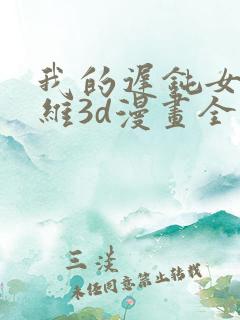 我的遲鈍女
維3d漫畫全
三淡
未经同意禁止转载